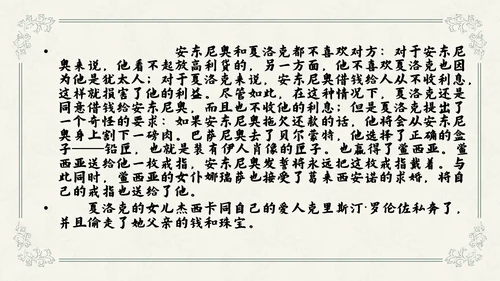 • 安东尼奥和夏洛克都不喜欢对方：对于安东尼
奥来说，他看不起放高利贷的，另一方面，他不喜欢夏洛克也因
为他是犹太人；对于夏洛克来说，安东尼奥借钱给人从不收利息，
这样就损害了他的利益。尽管如此，在这种情况下，夏洛克还是
同意借钱给安东尼奥，而且也不收他的利息；但是夏洛克提出了
一个奇怪的要求：如果安东尼奥拖欠还款的话，他将会从安东尼
奥身上割下一磅肉。巴萨尼奥去了贝尔蒙特，他选择了正确的盒
子——铅匣，也就是装有伊人肖像的匣子。也赢得了鲍西亚。鲍
西亚送给他一枚戒指，安东尼奥发誓将永远把这枚戒指戴着。与
此同时，鲍西亚的女仆娜瑞萨也接受了葛来西安诺的求婚，将自
己的戒指也送给了他。
• 夏洛克的女儿杰西卡同自己的爱人克里斯汀·罗伦佐私奔了，
并且偷走了她父亲的钱和珠宝。